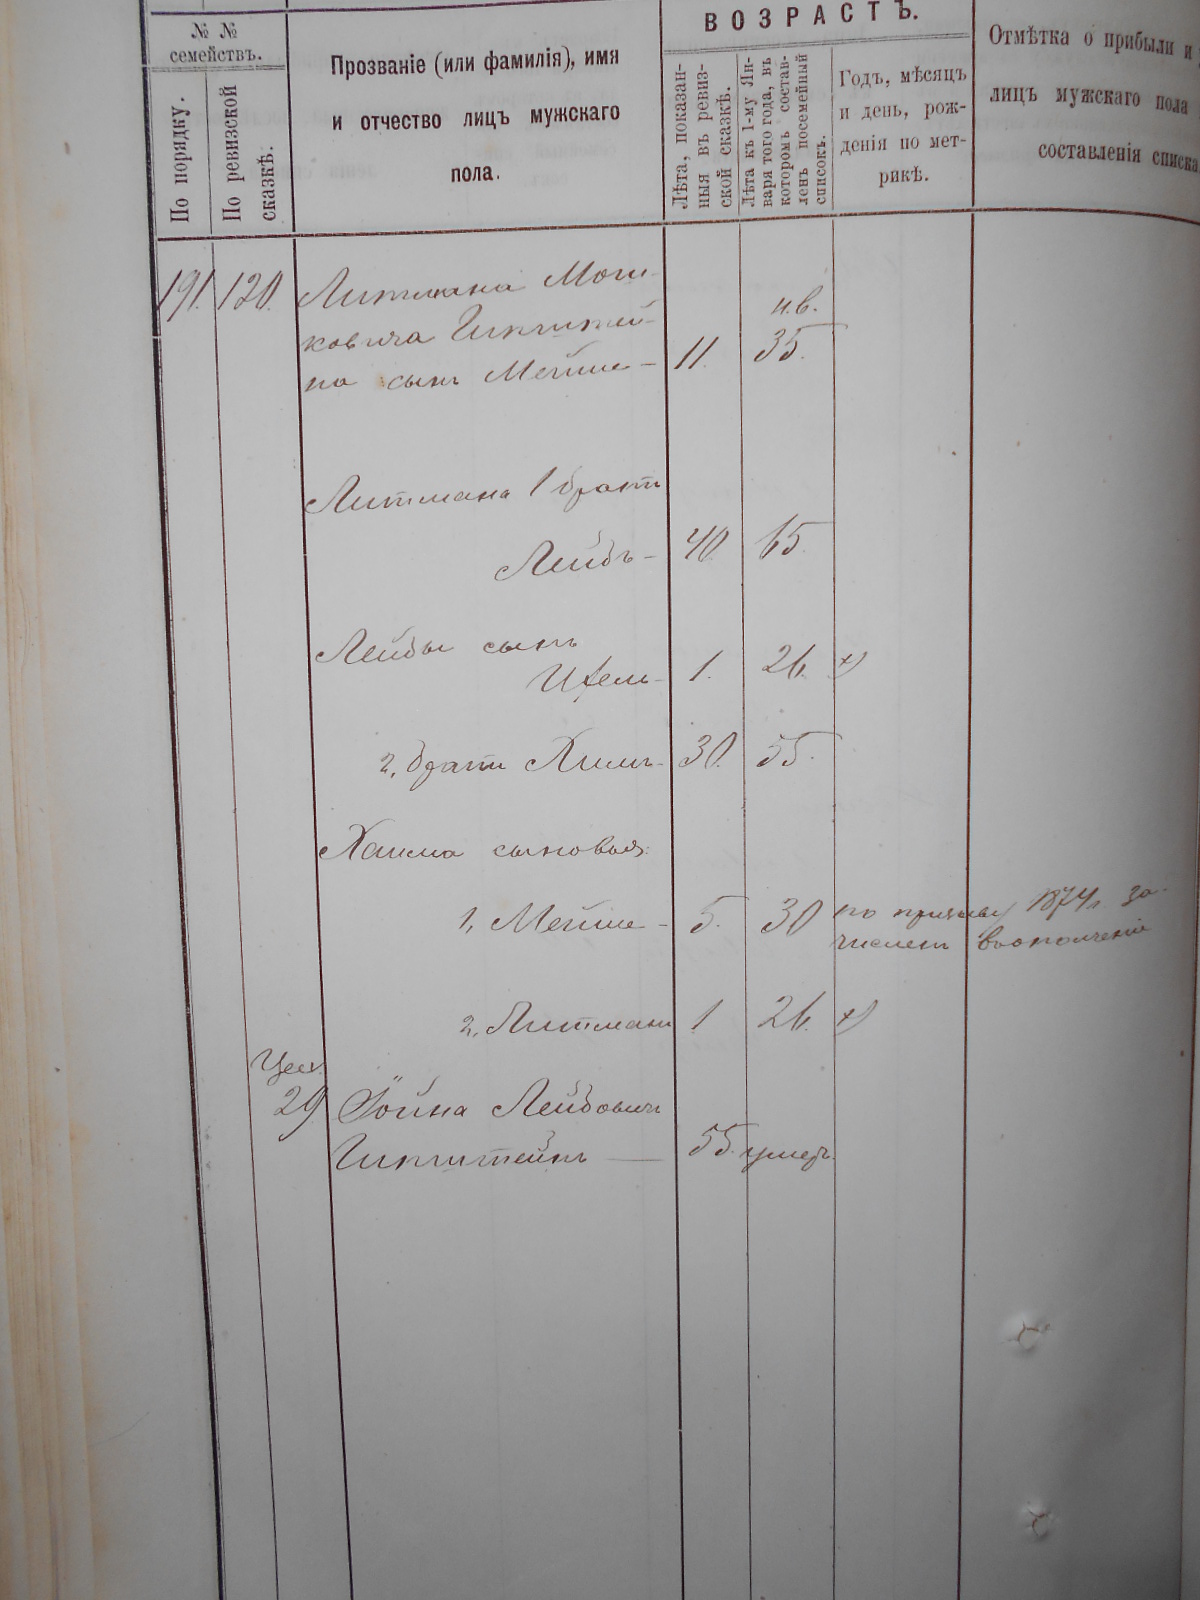 № №
семействъ.
По порядку.
По ревизской
сказкѣ.
Прозваніе (или фамилія), имя
и отчество лицъ мужскаго
пола.
ВОЗРАСТЪ.
Лѣта, показан-
ныя въ ревиз-
ской сказкѣ.
Лѣта къ 1-му Ян-
варя того года, въ
которомъ состав-
ленъ посемейный
списокъ.
Годъ, мѣсяцъ
и день, рож-
денія по мет-
рикѣ.
Отмѣтка о прибыли и
лицъ мужскаго пола
составленія списка
191. 120. Литмана Мош-
н.в.
ковича Гипштей-
на сынъ Мейше — 11. 35.
Литмана 1 братъ
Лейбъ — 40. 65.
Лейбы сынъ
Ицель — 1. 26. х)
2, братъ Хаимъ — 30. 55.
Хаима сыновья:
1, Мейше — 5. 30 по призыву 1874 г. за-
численъ въ ополченіе
2, Литманъ 1 26. х)
Цех.
29 Іойна Лейбовичъ
Гипштейнъ — 55. умеръ.